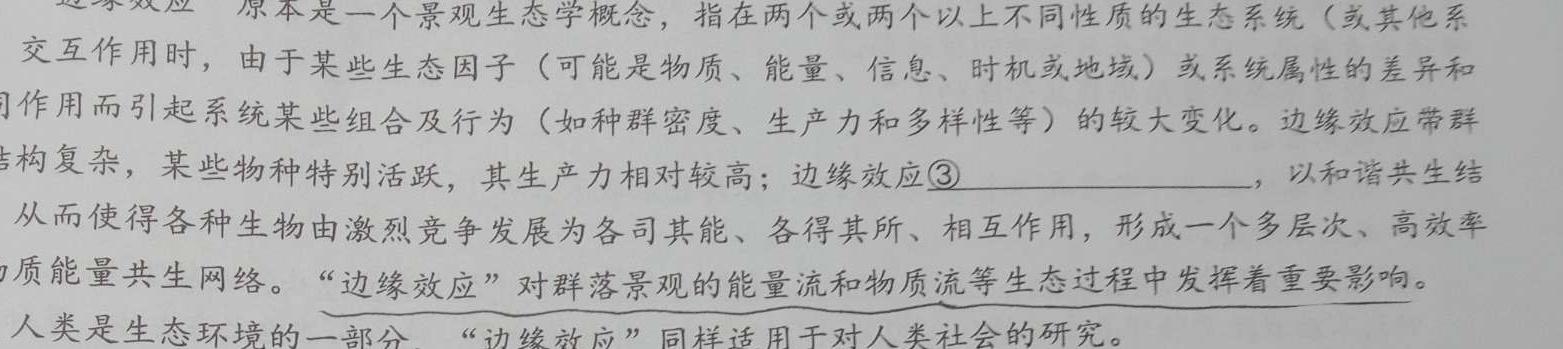 边缘效应 原本是一个景观生态学概念，指在两个或两个以上不同性质的生态系统（或其他系
交互作用时，由于某些生态因子（可能是物质、能量、信息、时机或地域）或系统属性的差异和
同作用而引起系统某些组合及行为（如种群密度、生产力和多样性等）的较大变化。边缘效应带群
结构复杂，某些物种特别活跃，其生产力相对较高；边缘效应③，以和谐共生结
从而使得各种生物由激烈竞争发展为各司其能、各得其所、相互作用，形成一个多层次、高效率
质能量共生网络。“边缘效应”对群落景观的能量流和物质流等生态过程中发挥着重要影响。
人类是生态环境的一部分，“边缘效应”同样适用于对人类社会的研究。